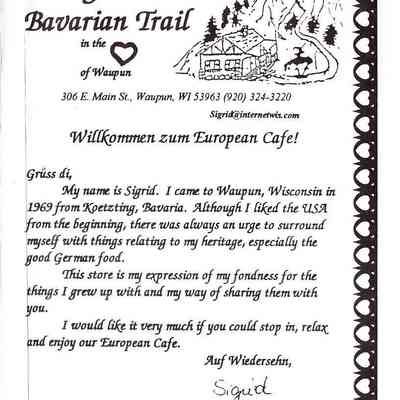 Bavarian Trail
in the
of Waupun
306 E. Main St., Waupun, WI 53963 (920) 324-3220
Sigrid@internetwis.com
Willkommen zum European Cafe!
Grüss di,
My name is Sigrid. I came to Waupun, Wisconsin in
1969 from Koetzting, Bavaria. Although I liked the USA
from the beginning, there was always an urge to surround
myself with things relating to my heritage, especially the
good German food.
This store is my expression of my fondness for the
things I grew up with and my way of sharing them with
you.
I would like it very much if you could stop in, relax
and enjoy our European Cafe.
Auf Wiedersehn,
Sigrid